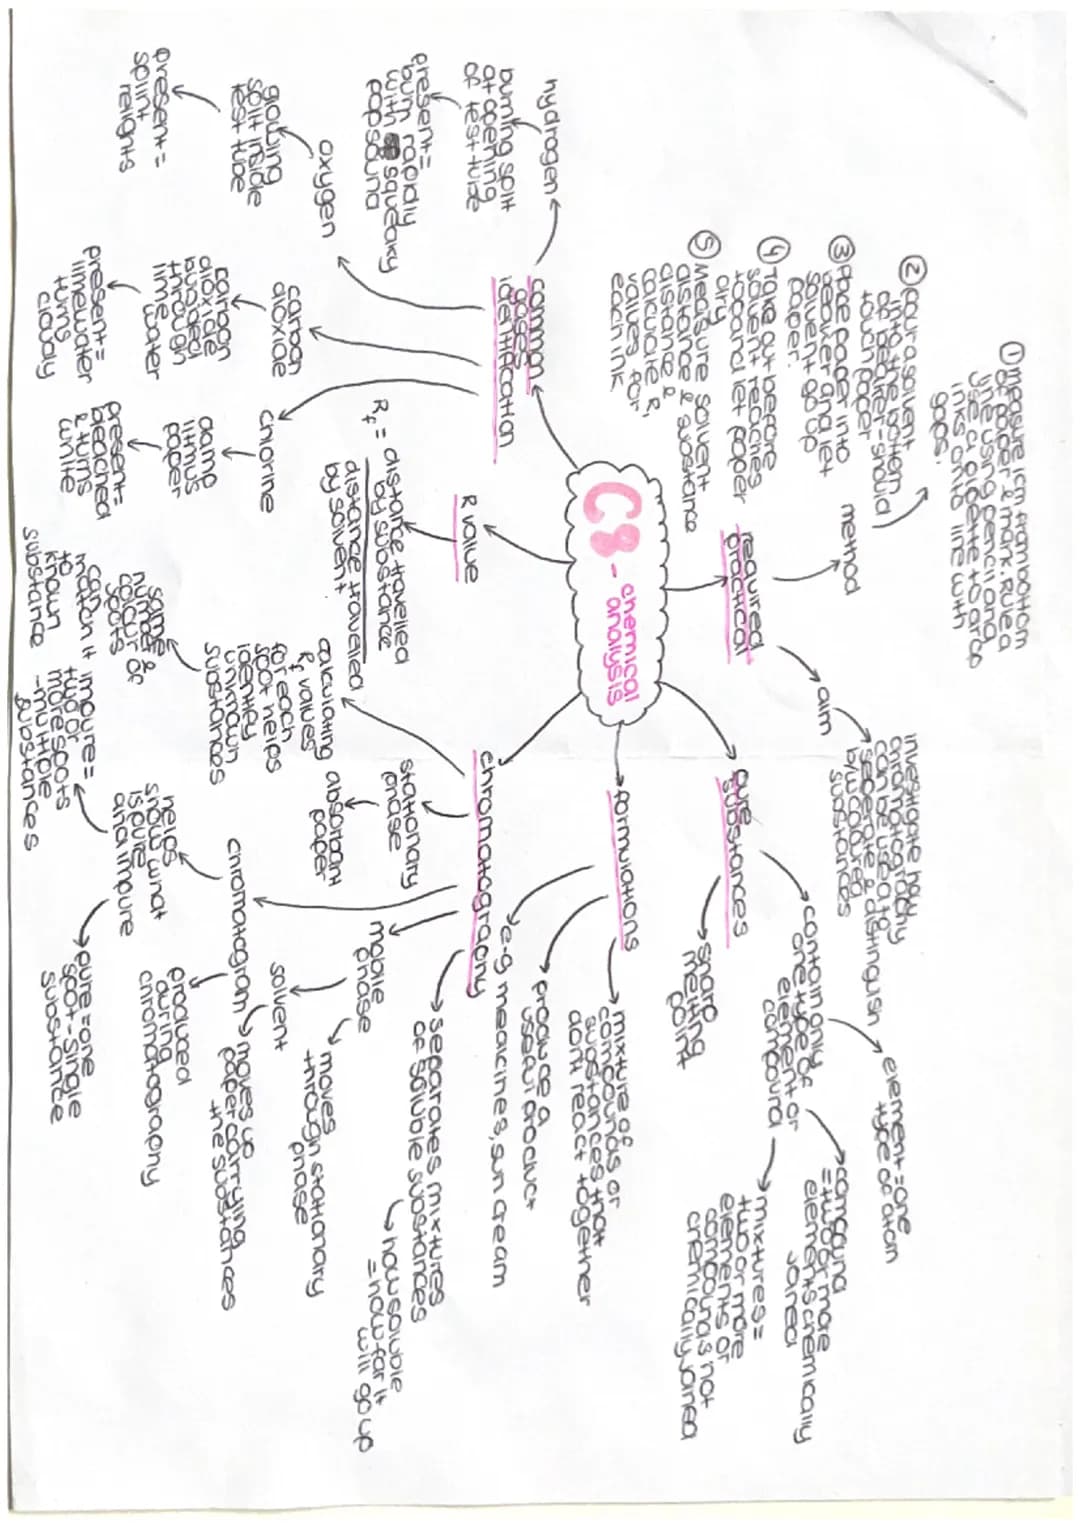 C8 - chemical
analysis
required
practical
method
① measure 1cm from bottom
of paper & mark. Ruled
line using pencil and
use a pipette to drop
inks onto line with
gaps.
② pour a solvent
into the bottom
of beaker - should
touch paper
③ Place paper into
beaker and let
solvent go up
paper.
④ Take out before
solvent reaches
top and let paper
dry
⑤ Measure solvent
distance & substance
distance &
calculate Rf
values for
each ink
aim
investigate how
chromatography
can be used to
seperate & distinguish
b/w coloured
substances
pure
substances
contain only
one type of
element or
compound
element = one
type of atom
compound
= two or more
elements chemically
joined
mixtures =
two or more
elements or
compounds not
chemically joined
sharp
melting
point
formulations
mixture of
compounds or
substances that
dont react together
produce a
useful product
e-g medicines, sun cream
chromatography
separates mixtures
of soluble substances
how soluble
= how far it
will go up
mobile
phase
moves
through stationary
phase
solvent
moves up
paper carrying
the substances
chromatogram
produced
during
chromatography
helps
show what
is pure
and impure
pure = one
spot - single
substance
impure =
two or
more spots
- multiple
substances
stationary
phase
absorbant
paper
calculating
Rf values
for each
spot helps
identify
unknown
substances
same
number &
colour of
spots
can
match it
to
known
substance
R value
Rf = distance travelled
by substance
distance travelled
by solvent
common
gases
identification
hydrogen
burning split
at opening
of test tube
present =
burn rapidly
with squeaky
pop sound
oxygen
glowing
split inside
test tube
present =
splint
relights
carbon
dioxide
carbon
dioxide
bubbled
through
lime water
present =
limewater
turns
cloudy
chlorine
damp
litmus
paper
present =
bleached
& turns
white